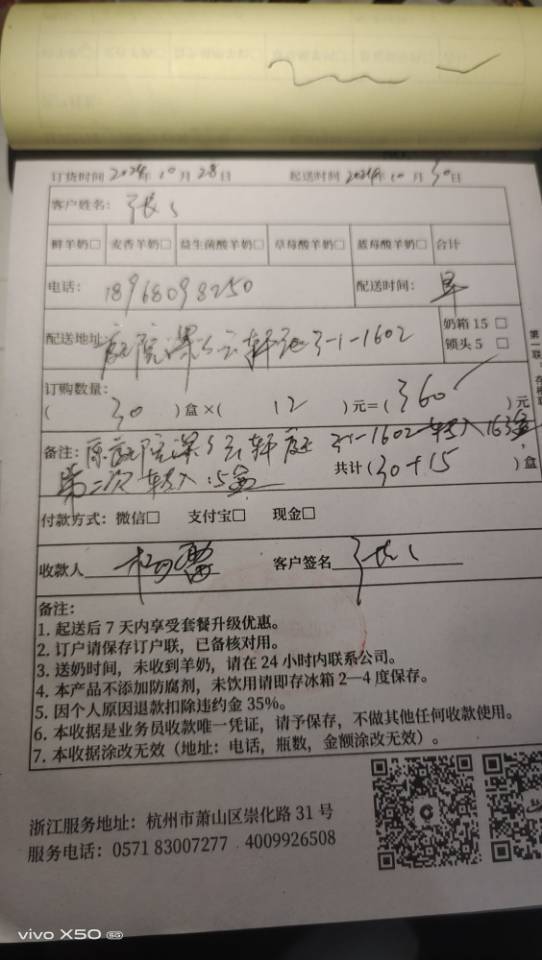 订货时间 2024年 10 月 28日 起送时间 2024年 10 月 30日
客户姓名： 张
鲜羊奶□ 麦香羊奶□ 益生菌酸羊奶□ 草莓酸羊奶□ 蓝莓酸羊奶□ 合计
电话： 18968098250 配送时间： 早
配送地址： 庭院深深云轩 3-1-1602 奶箱 15 □
锁头 5 □
订购数量：
( 30 ) 盒 × ( 12 ) 元 = ( 360 ) 元
备注： 原庭院深深云轩庭 3-1-1602 转入
第二次 转入 15 共计 (30+15) 盒
付款方式：微信□ 支付宝□ 现金□
收款人 杨雷 客户签名 张
备注：
1. 起送后 7 天内享受套餐升级优惠。
2. 订户请保存订户联，已备核对用。
3. 送奶时间，未收到羊奶，请在 24 小时内联系公司。
4. 本产品不添加防腐剂，未饮用请即存冰箱 2—4 度保存。
5. 因个人原因退款扣除违约金 35%。
6. 本收据是业务员收款唯一凭证，请予保存，不做其他任何收款使用。
7. 本收据涂改无效（地址：电话，瓶数，金额涂改无效）。
浙江服务地址：杭州市萧山区崇化路 31 号
服务电话：0571 83007277 4009926508
vivo X50 5G